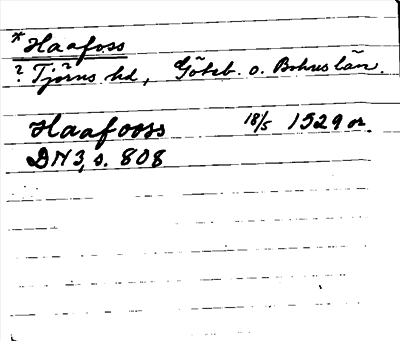 *Haafoss
? Tjörns hd, Göteb. o. Bohus län.
Haafooss 18/5 1529 or.
DN 3, s. 808